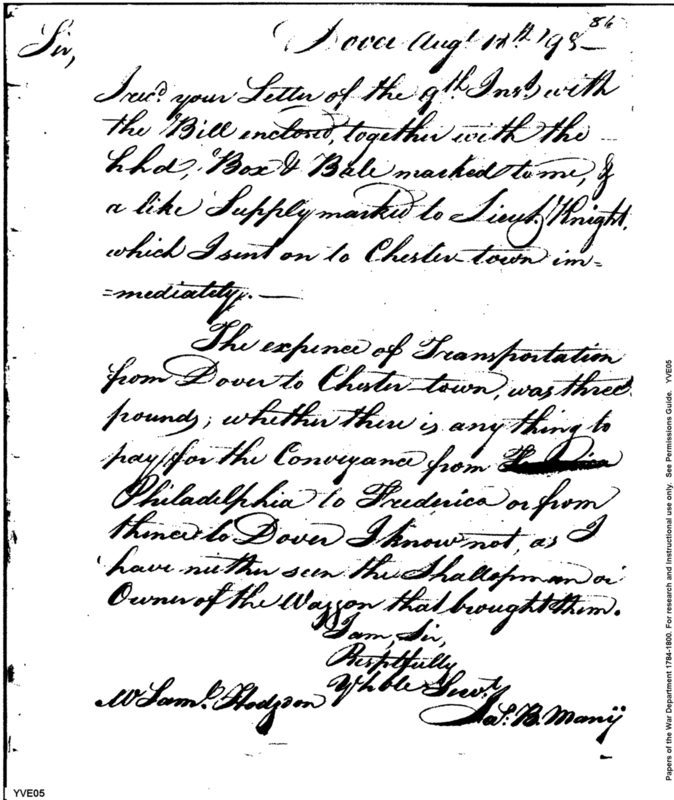 86
Sir,
Dover Augt. 12th '98—
I recd. your Letter of the 9th. Inst. with
the Bill enclosed, together with the
hhd, Box & Bale marked to me, &
a like Supply marked to Lieut. Knight,
which I sent on to Chester-town im=
=mediately.—
The expence of Transportation
from Dover to Chester-town, was three
pounds; whether there is any thing to
pay for the Conveyance from
Philadelphia to Frederica or from
thence to Dover I know not, as I
have neither seen the Shallopman or
Owner of the Waggon that brought them.
I am, Sir,
Resptfully
Yr hble Servt.
Jas. B. Many
Mr Saml. Hodgdon
Papers of the War Department 1784-1800. For research and Instructional use only. See Permissions Guide. YVE05
YVE05